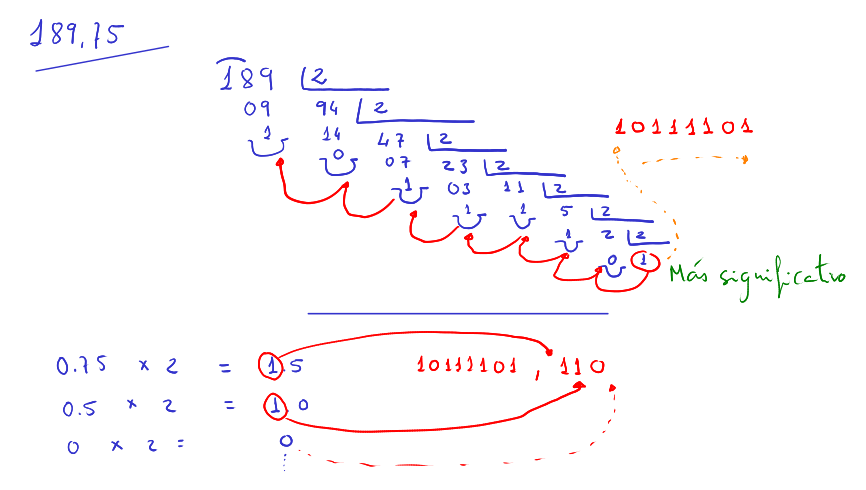 189,75
189 2
09 94 2
1 14 47 2
0 07 23 2
1 03 11 2
1 1 5 2
1 2 2
0 1
10111101
Más significativo
0.75 x 2 = 1.5
10111101, 110
0.5 x 2 = 1.0
0 x 2 = 0